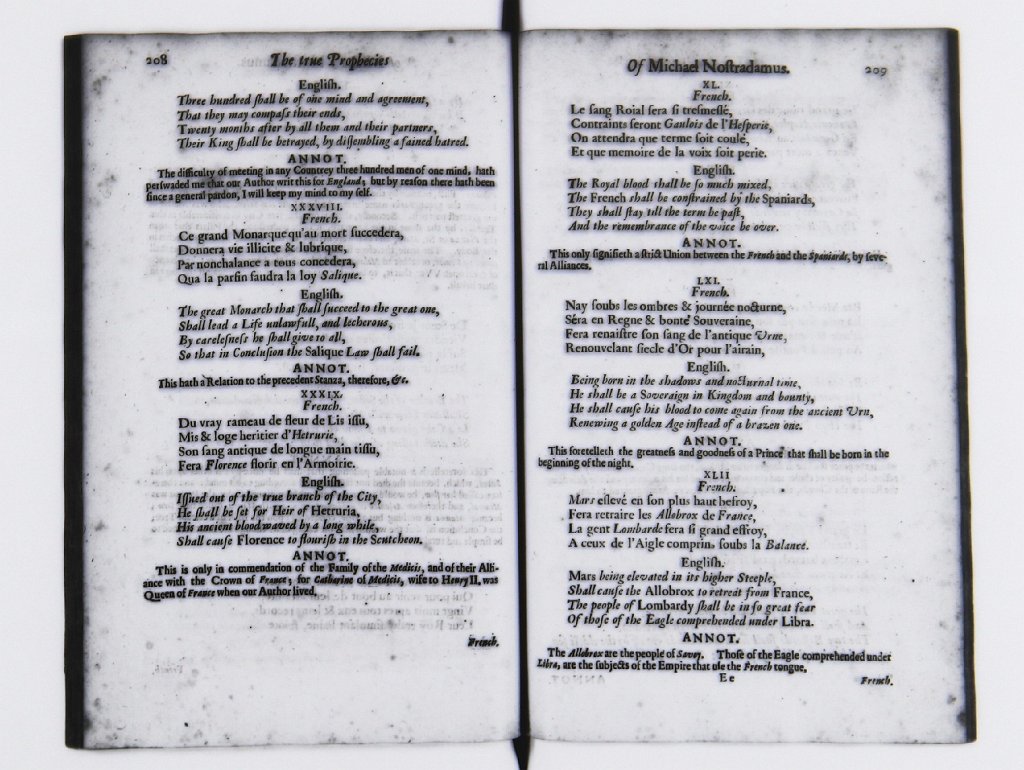 208
The true Prophecies
Engliſh.
Three hundred ſhall be of one mind and agreement,
That they may compaſs their ends,
Twenty months after by all them and their partners,
Their King ſhall be betrayed, by diſſembling a fained hatred.
ANNOT.
The difficulty of meeting in any Countrey three hundred men of one mind, hath
perſwaded me that our Author writ this for England; but by reaſon there hath been
ſince a general pardon, I will keep my mind to my ſelf.
XXXVIII.
French.
Ce grand Monarque qu'au mort ſuccedera,
Donnera vie illicite & lubrique,
Par nonchalance a tous concedera,
Qua la parfin faudra la loy Salique.
Engliſh.
The great Monarch that ſhall ſucceed to the great one,
Shall lead a Life unlawfull, and lecherous,
By careleſneſs he ſhall give to all,
So that in Concluſion the Salique Law ſhall fail.
ANNOT.
This hath a Relation to the precedent Stanza, therefore, &c.
XXXIX.
French.
Du vray rameau de fleur de Lis iſſu,
Mis & loge heritier d'Hetrurie,
Son ſang antique de longue main tiſſu,
Fera Florence florir en l'Armoirie.
Engliſh.
Iſſued out of the true branch of the City,
He ſhall be ſet for Heir of Hetruria,
His ancient blood waved by a long while,
Shall cauſe Florence to flouriſh in the Scutcheon.
ANNOT.
This is only in commendation of the Family of the Medicis, and of their Alli-
ance with the Crown of France; for Catharine of Medicis, wife to Henry II, was
Queen of France when our Author lived.
French.
Of Michael Noſtradamus.
209
XL.
French.
Le ſang Roial ſera ſi treſmeſlé,
Contraints ſeront Gaulois de l'Heſperie,
On attendra que terme ſoit coulé,
Et que memoire de la voix ſoit perie.
Engliſh.
The Royal blood ſhall be ſo much mixed,
The French ſhall be conſtrained by the Spaniards,
They ſhall ſtay till the term be paſt,
And the remembrance of the voice be over.
ANNOT.
This only ſignifieth a ſtrict Union between the French and the Spaniards, by ſeve-
ral Alliances.
LXI.
French.
Nay ſoubs les ombres & journée nocturne,
Séra en Regne & bonté Souveraine,
Fera renaiſtre ſon ſang de l'antique Urne,
Renouvelant ſiecle d'Or pour l'airain,
Engliſh.
Being born in the shadows and nocturnal time,
He ſhall be a Soveraign in Kingdom and bounty,
He ſhall cauſe his blood to come again from the ancient Urn,
Renewing a golden Age inſtead of a brazen one.
ANNOT.
This foretelleth the greatneſs and goodneſs of a Prince that ſhall be born in the
beginning of the night.
XLII
French.
Mars eſlevé en ſon plus haut befroy,
Fera retraire les Allobrox de France,
La gent Lombarde ſera ſi grand effroy,
A ceux de l'Aigle comprins ſoubs la Balance.
Engliſh.
Mars being elevated in its higher Steeple,
Shall cauſe the Allobrox to retreat from France,
The people of Lombardy ſhall be in ſo great fear
Of thoſe of the Eagle comprehended under Libra.
ANNOT.
The Allobrox are the people of Savoy. Thoſe of the Eagle comprehended under
Libra, are the ſubjects of the Empire that uſe the French tongue.
Ee
French.